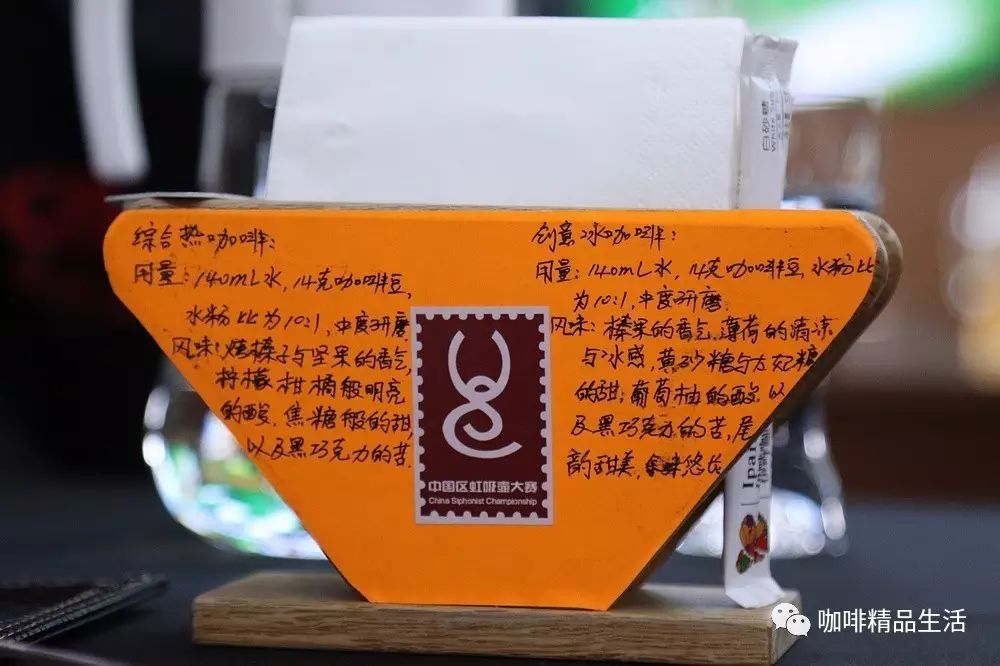 综合热咖啡:
用量:140mL水,14克咖啡豆,
水粉比为10:1,中度研磨
风味:烤榛子与坚果的香气
柠檬柑橘般明亮
的酸,焦糖般的甜,
以及黑巧克力的苦.
创意冰咖啡:
用量:140mL水,14克咖啡豆,水粉比
为10:1,中度研磨.
风味:榛果的香气,薄荷的清凉
与冰感,黄砂糖与太妃糖
的甜;葡萄柚的酸,以
及黑巧克力的苦,尾
韵甜美,余味悠长
中国区虹吸壶大赛
China Siphonist Championship
白砂糖
咖啡精品生活